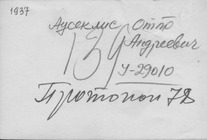 1937
Аусеклис Отто
Андреевич
139
У-29010
Протопоп 78